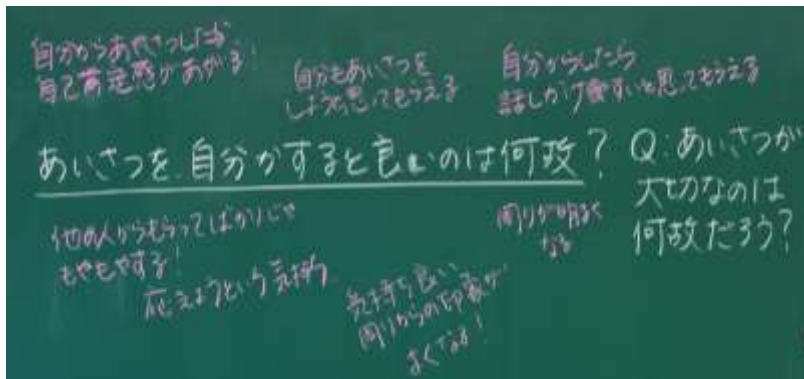 自分からあいさつした方が
自己肯定感があがる！
自分もあいさつを
しようと思ってもらえる
自分からしたら
話しかけ易すいと思ってもらえる
あいさつを自分がすると良いのは何故？
Q:あいさつが
大切なのは
何故だろう？
他の人からもらってばかりじゃ
もやもやする！
応えようという気持ち
気持ち良い
周りからの印象が
よくなる！
周りが明るく
なる